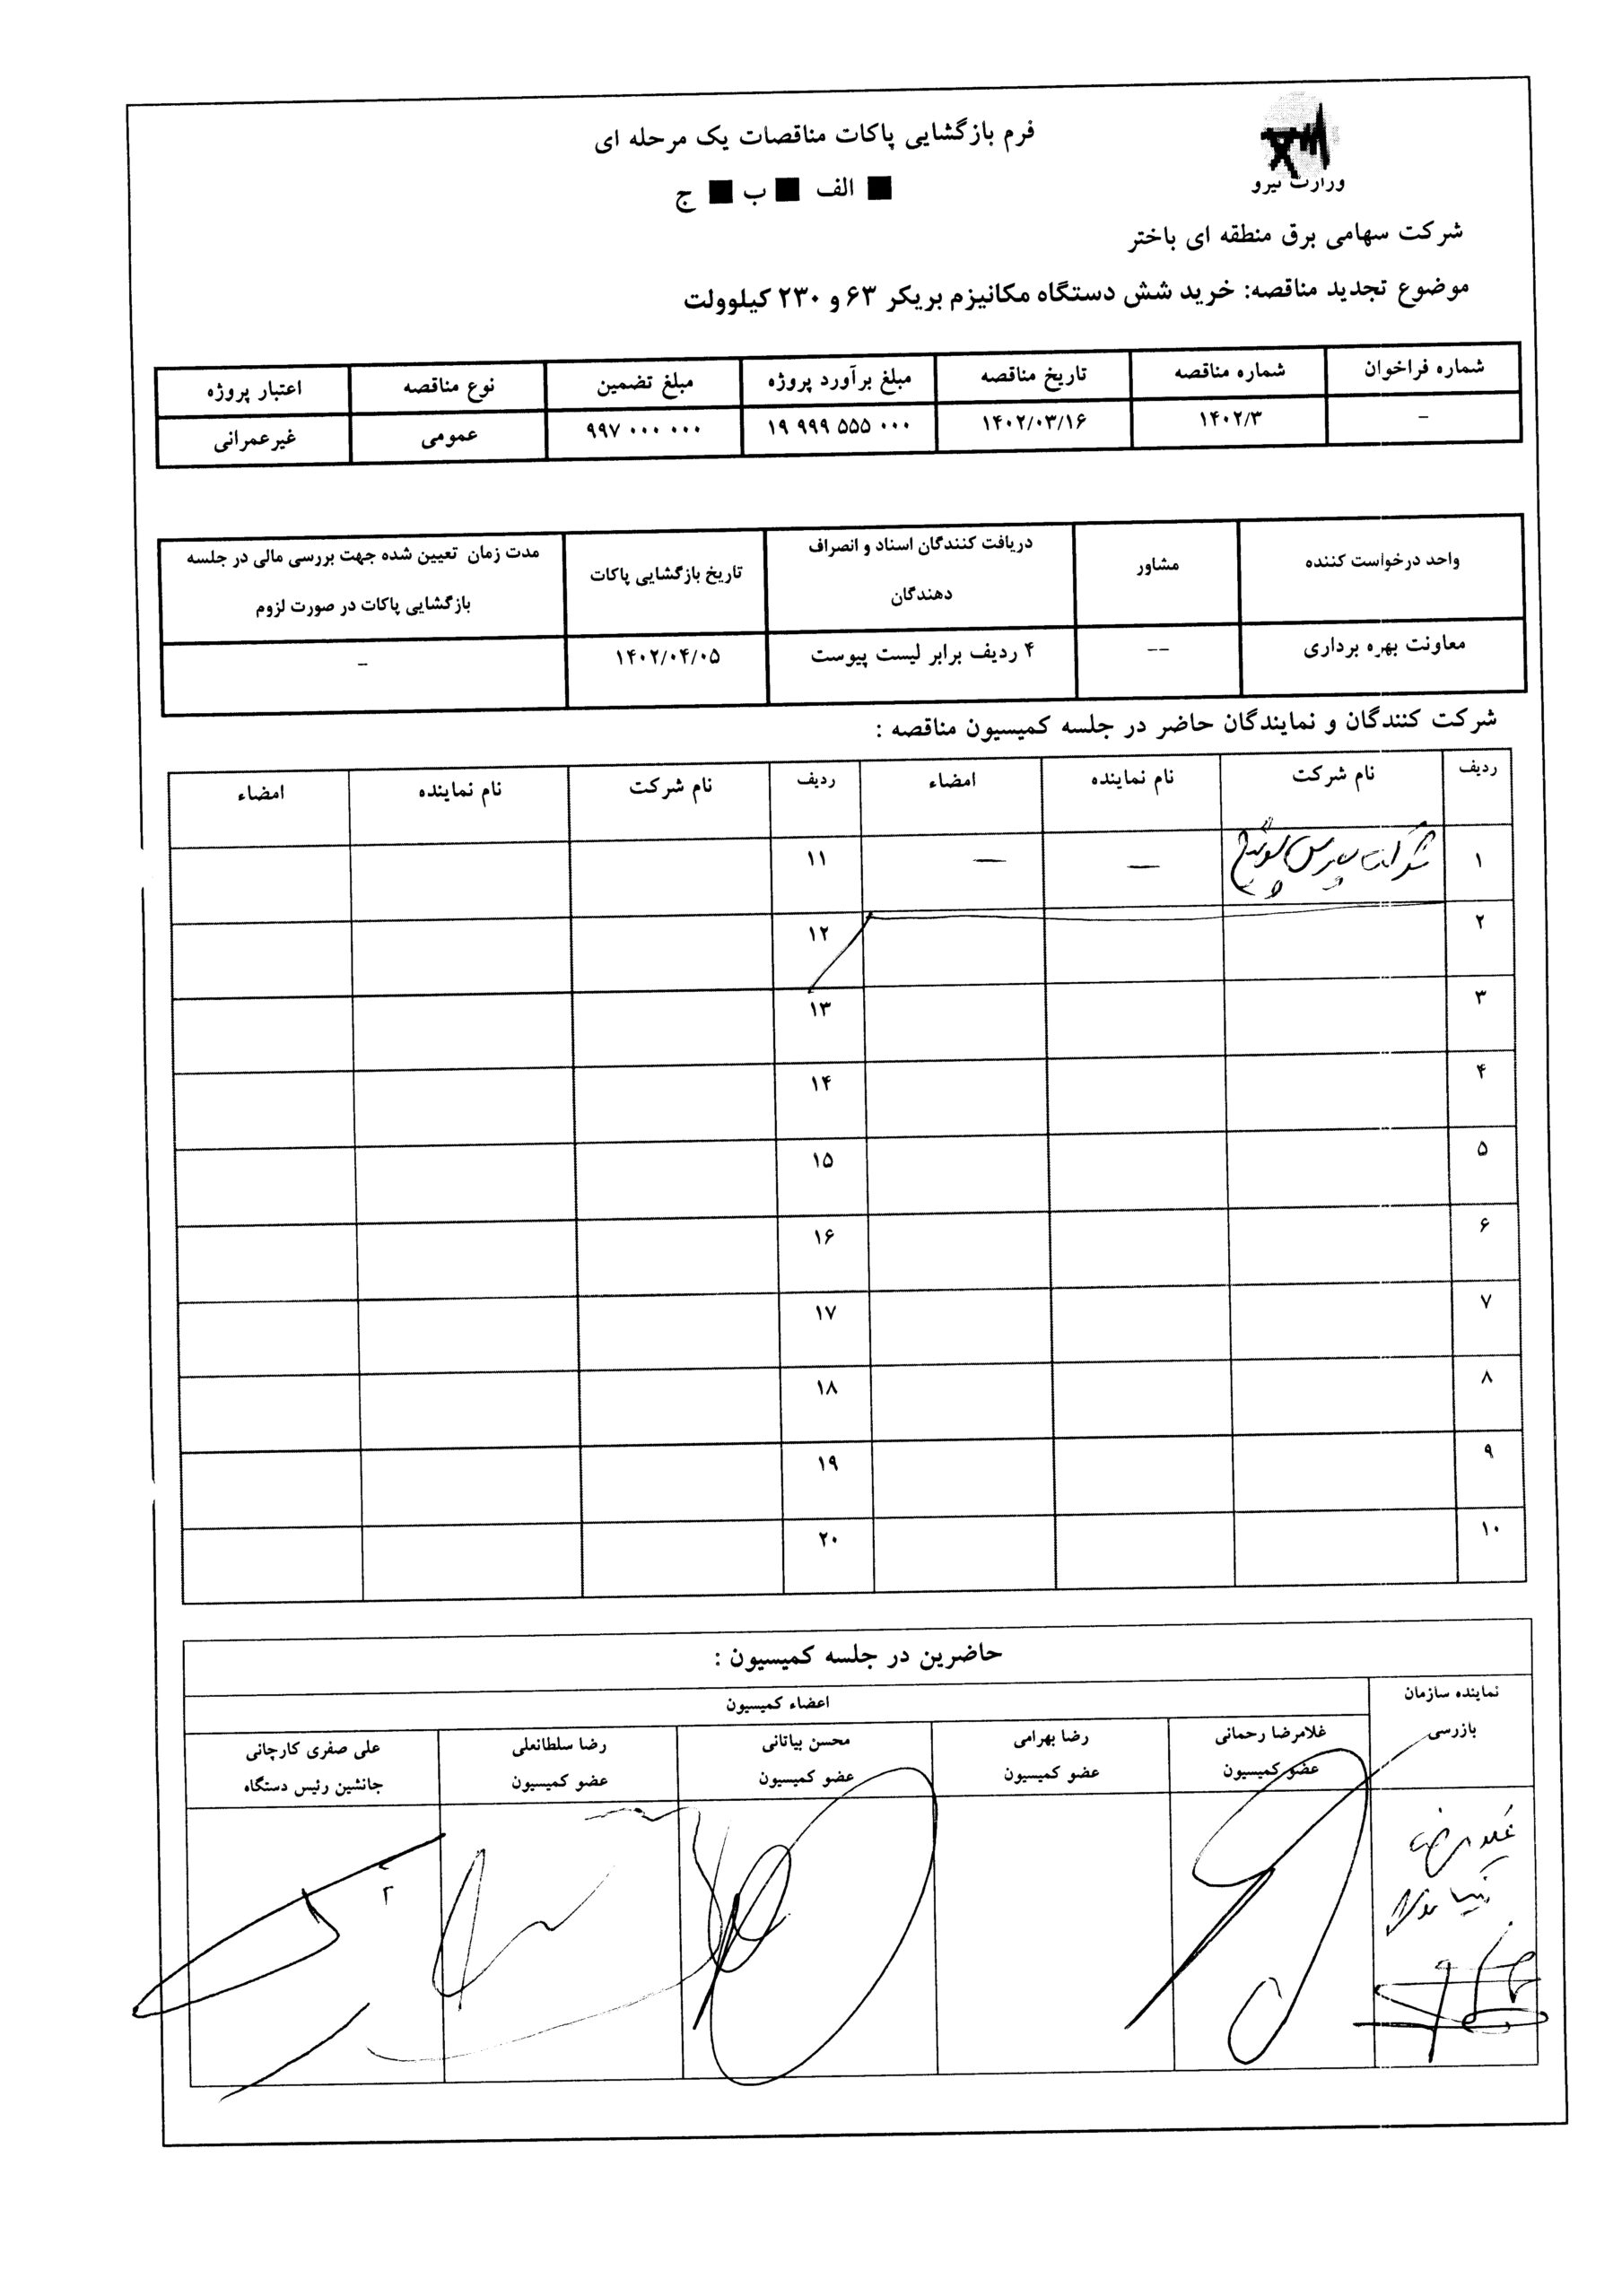 وزارت نیرو
فرم بازگشایی پاکات مناقصات یک مرحله ای
■ الف ■ ب ■ ج
شرکت سهامی برق منطقه ای باختر
موضوع تجدید مناقصه: خرید شش دستگاه مکانیزم بریکر ۶۳ و ۲۳۰ کیلوولت
شماره فراخوان شماره مناقصه تاریخ مناقصه مبلغ برآورد پروژه مبلغ تضمین نوع مناقصه اعتبار پروژه
- ۱۴۰۲/۳ ۱۴۰۲/۰۳/۱۶ ۱۹ ۹۹۹ ۵۵۵ ۰۰۰ ۹۹۷ ۰۰۰ ۰۰۰ عمومی غیرعمرانی
واحد درخواست کننده مشاور دریافت کنندگان اسناد و انصراف دهندگان تاریخ بازگشایی پاکات مدت زمان تعیین شده جهت بررسی مالی در جلسه بازگشایی پاکات در صورت لزوم
معاونت بهره برداری -- ۴ ردیف برابر لیست پیوست ۱۴۰۲/۰۴/۰۵ -
شرکت کنندگان و نمایندگان حاضر در جلسه کمیسیون مناقصه :
ردیف نام شرکت نام نماینده امضاء ردیف نام شرکت نام نماینده امضاء
۱ شرکت پارس سوئیچ — — ۱۱
۲ ۱۲
۳ ۱۳
۴ ۱۴
۵ ۱۵
۶ ۱۶
۷ ۱۷
۸ ۱۸
۹ ۱۹
۱۰ ۲۰
حاضرین در جلسه کمیسیون :
نماینده سازمان بازرسی
اعضاء کمیسیون
غلامرضا رحمانی رضا بهرامی محسن بیاتانی رضا سلطانعلی علی صفری کارچانی
عضو کمیسیون عضو کمیسیون عضو کمیسیون عضو کمیسیون جانشین رئیس دستگاه